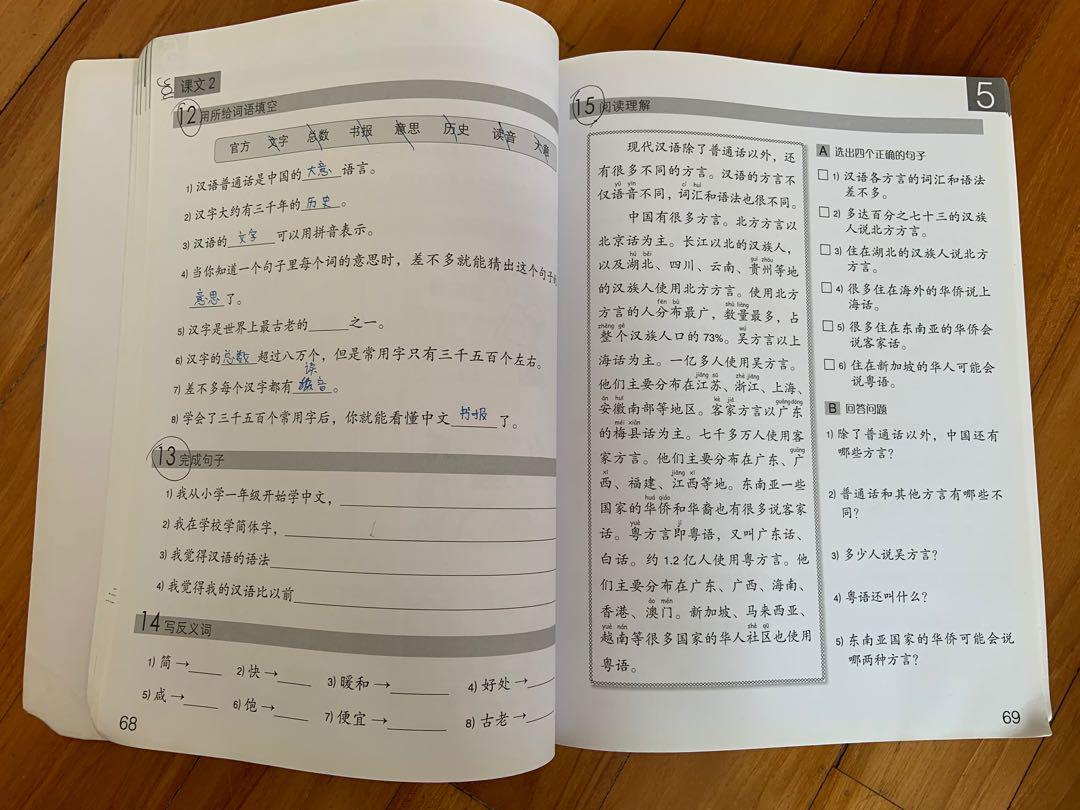 课文2
12 用所给词语填空
官方 文字 总数 书报 意思 历史 读音 大意
1) 汉语普通话是中国的 大意 语言。
2) 汉字大约有三千年的 历史 。
3) 汉语的 文字 可以用拼音表示。
4) 当你知道一个句子里每个词的意思时，差不多就能猜出这个句子的
意思 了。
5) 汉字是世界上最古老的______之一。
6) 汉字的 总数 超过八万个，但是常用字只有三千五百个左右。
读
7) 差不多每个汉字都有 音 。
8) 学会了三千五百个常用字后，你就能看懂中文 书报 了。
13 完成句子
1) 我从小学一年级开始学中文，
2) 我在学校学简体字，
3) 我觉得汉语的语法
4) 我觉得我的汉语比以前
14 写反义词
1) 简→ 2) 快→ 3) 暖和→ 4) 好处→
5) 咸→ 6) 饱→ 7) 便宜→ 8) 古老→
68
5
15 阅读理解
现代汉语除了普通话以外，还
有很多不同的方言。汉语的方言不
yǔ yīn cí huì
仅语音不同，词汇和语法也很不同。
中国有很多方言。北方方言以
北京话为主。长江以北的汉族人，
hú běi guì zhōu
以及湖北、四川、云南、贵州等地
的汉族人使用北方方言。使用北方
fēn bù shù liàng
方言的人分布最广，数量最多，占
zhěng gè wú
整个汉族人口的73%。吴方言以上
海话为主。一亿多人使用吴方言。
jiāng sū zhè jiāng
他们主要分布在江苏、浙江、上海、
ān huī kè jiā guǎng dōng
安徽南部等地区。客家方言以广东
méi xiàn
的梅县话为主。七千多万人使用客
guǎng
家方言。他们主要分布在广东、广
xī jiāng xī
西、福建、江西等地。东南亚一些
huá qiáo
国家的华侨和华裔也有很多说客家
yuè jí
话。粤方言即粤语，又叫广东话、
白话。约1.2亿人使用粤方言。他
们主要分布在广东、广西、海南、
ào mén
香港、澳门。新加坡、马来西亚、
yuè nán shè qū
越南等很多国家的华人社区也使用
粤语。
A 选出四个正确的句子
□ 1) 汉语各方言的词汇和语法
差不多。
□ 2) 多达百分之七十三的汉族
人说北方方言。
□ 3) 住在湖北的汉族人说北方
方言。
□ 4) 很多住在海外的华侨说上
海话。
□ 5) 很多住在东南亚的华侨会
说客家话。
□ 6) 住在新加坡的华人可能会
说粤语。
B 回答问题
1) 除了普通话以外，中国还有
哪些方言？
2) 普通话和其他方言有哪些不
同？
3) 多少人说吴方言？
4) 粤语还叫什么？
5) 东南亚国家的华侨可能会说
哪两种方言？
69